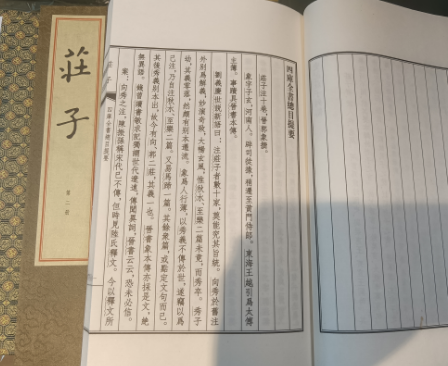 四庫全書總目提要
莊子注十卷，晉郭象撰。
象字子玄，河南人。辟司徒掾，稍遷至黃門侍郎。東海王越引爲太傅
主簿。事蹟具晉書本傳。
劉義慶世說新語曰：注莊子者數十家，莫能究其旨統。向秀於舊注
外別爲解義，妙演奇致，大暢玄風，惟秋水、至樂二篇未竟，而秀卒。秀子
幼，其義零落，然頗有別本遷流。象爲人行薄，以秀義不傳於世，遂竊以爲
己注，乃自注秋水、至樂二篇。又易馬蹄一篇。其餘衆篇，或點定文句而已。
其後秀義別本出，故今有向、郭二莊，其義一也。晉書象本傳亦採是文，絕
無異語。錢曾讀書敏求記獨謂世代遼遠，傳聞異詞，晉書云云，恐未必信。
案：向秀之注，陳振孫稱宋代已不傳，但時見陸氏釋文。今以釋文所
莊子
四庫全書總目提要
莊子